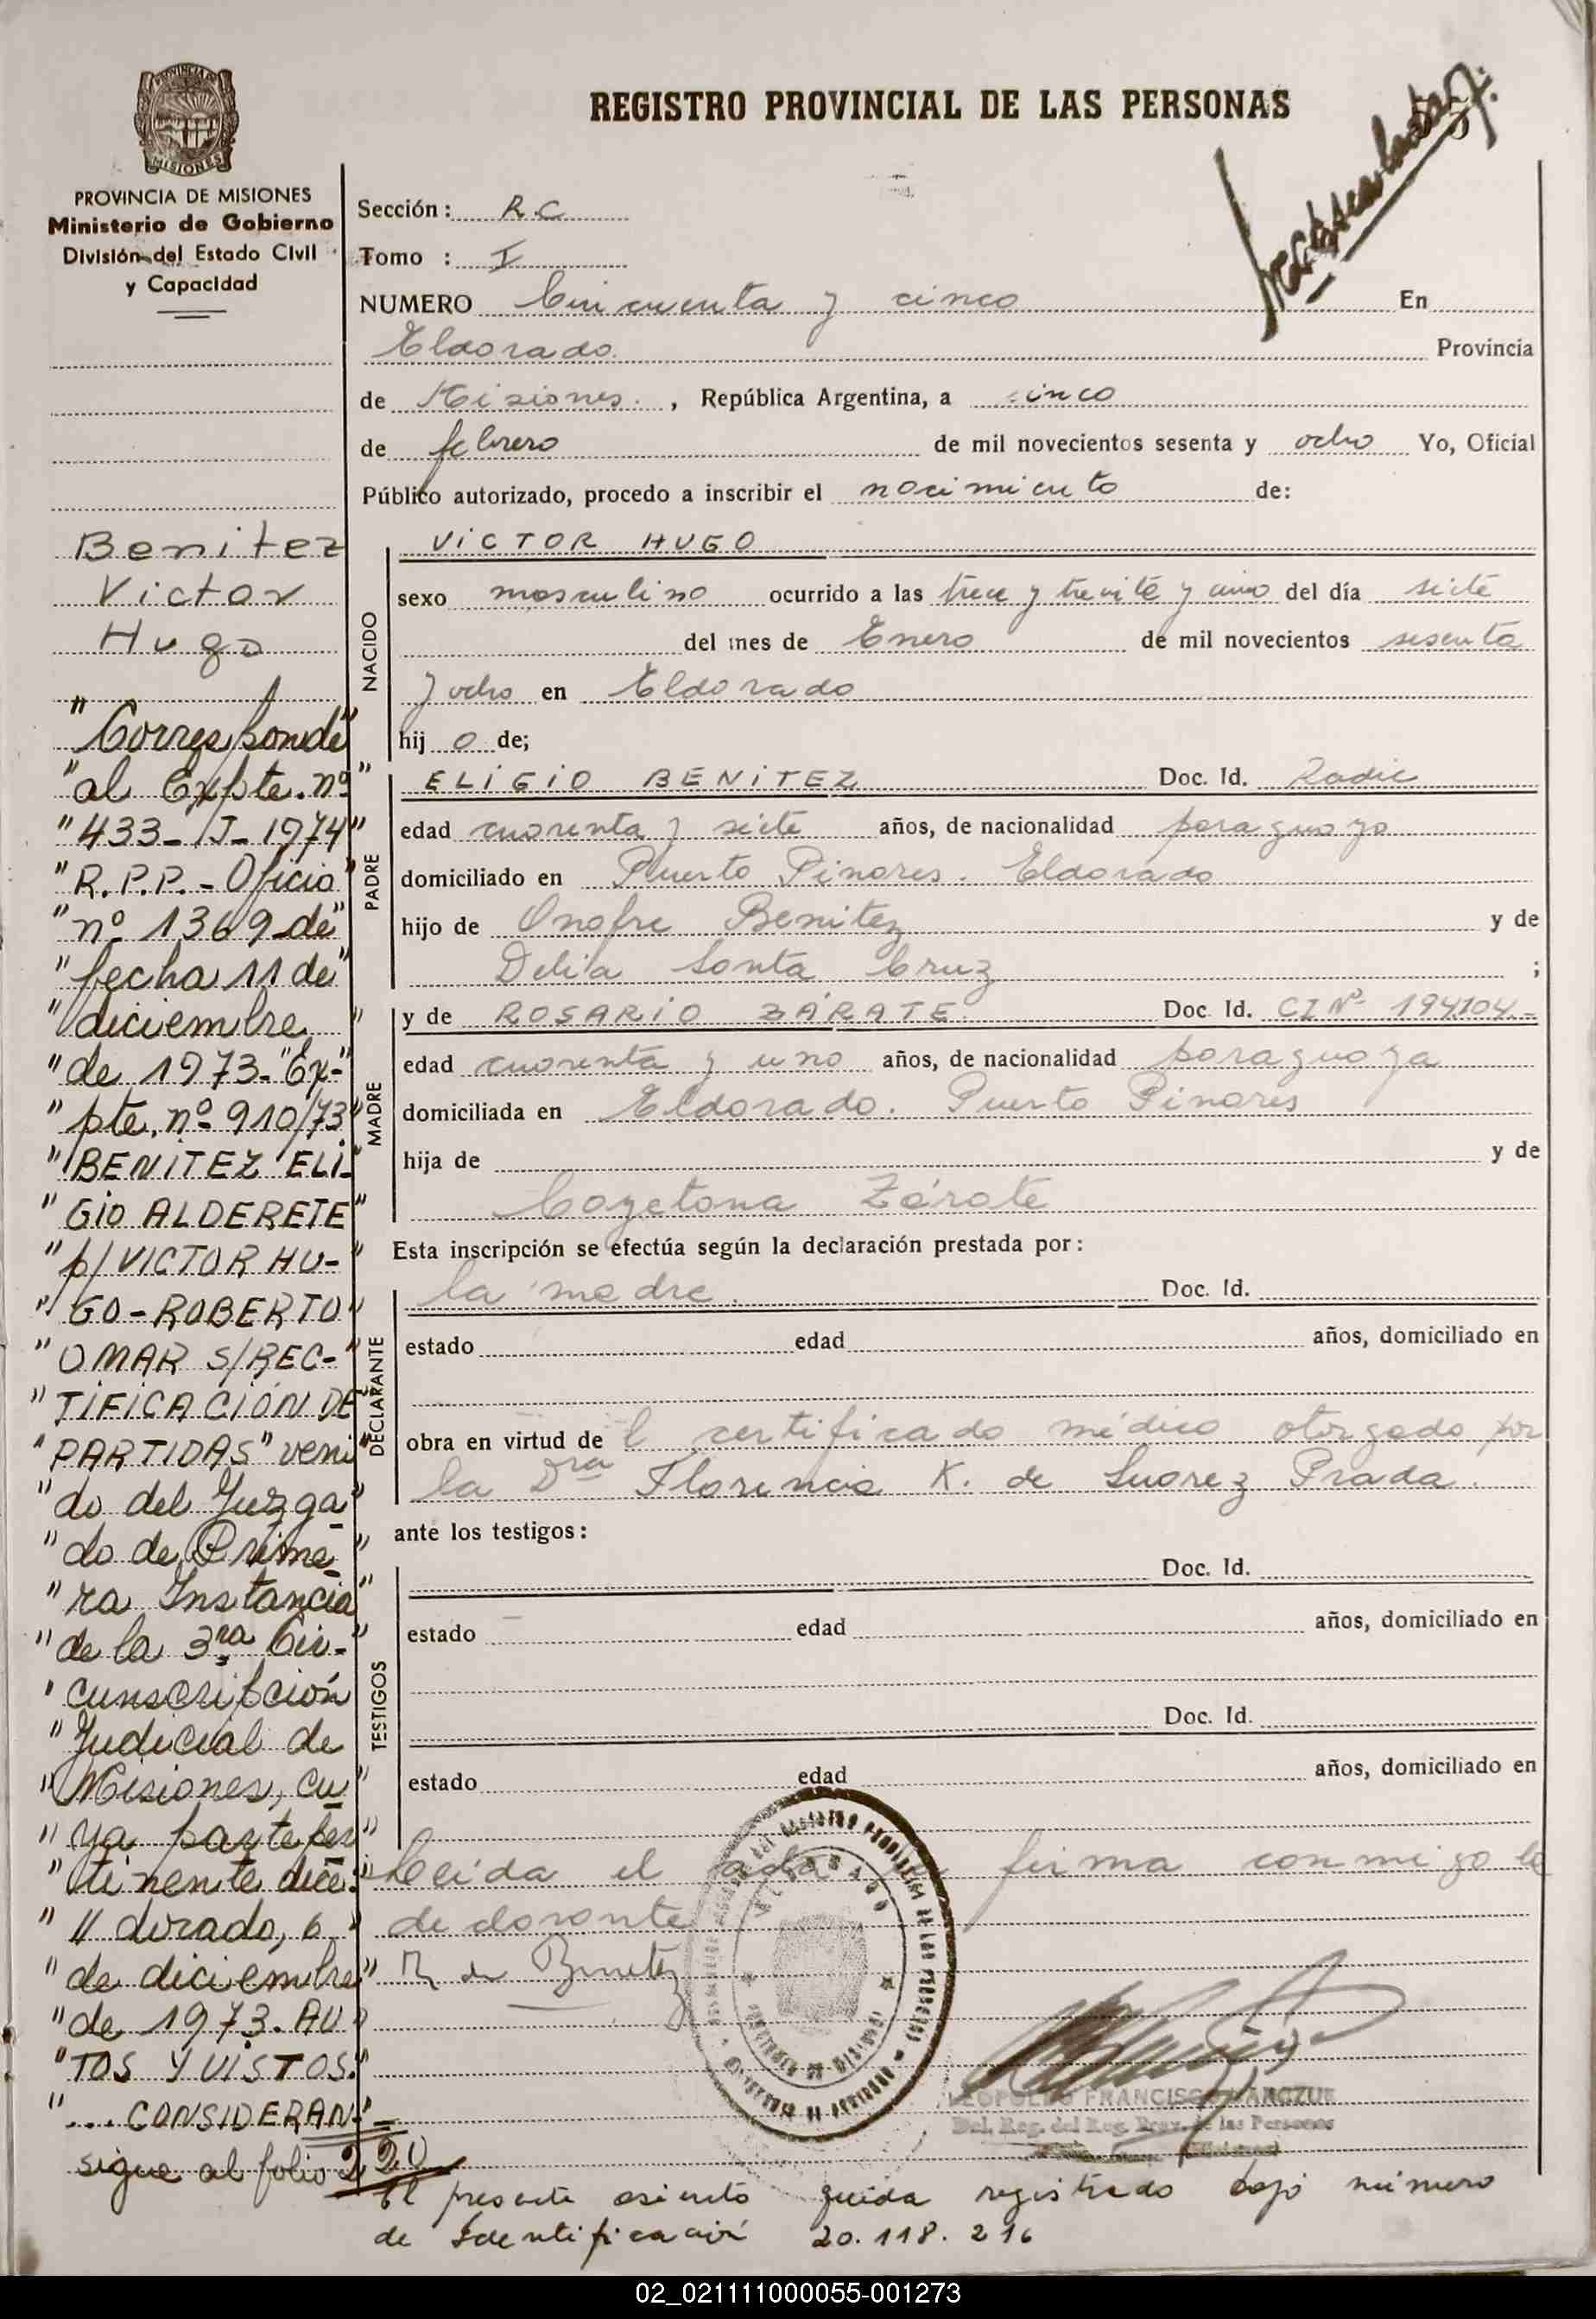 REGISTRO PROVINCIAL DE LAS PERSONAS
55
MISIONES
PROVINCIA DE MISIONES
Ministerio de Gobierno
División del Estado Civil
y Capacidad
Sección: R.C
Tomo : I
NUMERO Cincuenta y cinco En
Eldorado Provincia
de Misiones. , República Argentina, a cinco
de febrero de mil novecientos sesenta y ocho Yo, Oficial
Público autorizado, procedo a inscribir el nacimiento de:
NACIDO
VICTOR HUGO
sexo masculino ocurrido a las trece y treinta y cinco del día siete
del mes de Enero de mil novecientos sesenta
y ocho en Eldorado
hij o de;
PADRE
ELIGIO BENITEZ Doc. Id. Radic
edad cuarenta y siete años, de nacionalidad paraguayo
domiciliado en Puerto Pinares. Eldorado
hijo de Onofre Benitez y de
Delia Santa Cruz ;
MADRE
y de ROSARIO ZÁRATE Doc. Id. CI Nº 194104.-
edad cuarenta y uno años, de nacionalidad paraguaya
domiciliada en Eldorado. Puerto Pinares
hija de y de
Cayetana Zárate
Esta inscripción se efectúa según la declaración prestada por:
DECLARANTE
la madre. Doc. Id.
estado edad años, domiciliado en
obra en virtud de l certificado médico otorgado por
la Dra Florencia K. de Suarez Prada.
ante los testigos:
TESTIGOS
Doc. Id.
estado edad años, domiciliado en
Doc. Id.
estado edad años, domiciliado en
Leida el acta la firma conmigo la
declarante
R de Benitez
LEOPOLDO FRANCISCO
Del. Reg. del Reg. Prov. de las Personas
El presente asiento queda registrado bajo número
de Identificación 20.118.216
Benitez
Victor
Hugo
"Corresponde"
"al Expte. nº"
"433-J-1974"
"R.P.P.-Oficio"
"nº 1369 de"
"fecha 11 de"
"diciembre"
"de 1973-"Ex-"
"pte. nº 910/73"
"BENITEZ ELI-"
"GIO ALDERETE"
"p/VICTOR HU-"
"GO-ROBERTO"
"OMAR S/REC-"
"TIFICACIÓN DE
"PARTIDAS" veni"
"do del Juzga"
"do de Prime-"
"ra Instancia"
"de la 3ra Cir-"
"cunscripción
"Judicial de
"Misiones, cu"
"ya parte per"
"tinente dice:"
"ll dorado, 6"
"de diciembre"
"de 1973. AU"
"TOS Y VISTOS:"
"... CONSIDERAN-"
sigue al folio 220
02_021111000055-001273